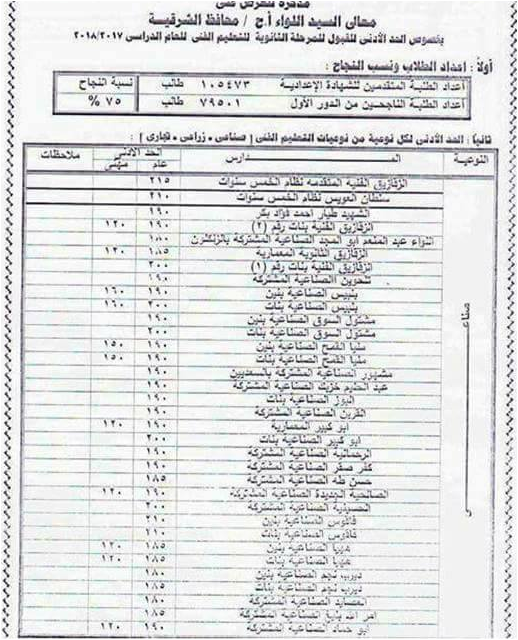 مذكرة للعرض على
معالى السيد اللواء أ.ح / محافظ الشرقية
بخصوص الحد الأدنى للقبول للمرحلة الثانوية للتعليم الفنى للعام الدراسى ٢٠١٨/٢٠١٧
أولاً : اعداد الطلاب ونسب النجاح :
أعداد الطلبة المتقدمين للشهادة الإعدادية ١٠٥٤٧٣ طالب نسبة النجاح
أعداد الطلبة الناجحين من الدور الأول ٧٩٥٠١ طالب ٧٥ %
ثانياً : الحد الأدنى لكل نوعية من نوعيات التعليم الفنى ( صناعى - زراعى - تجارى ) :
النوعية المــدارس الحد الأدنى ملاحظات
عام مهنى
صناعى
الزقازيق الفنية المتقدمة نظام الخمس سنوات ٢١٥
سلطان العويس نظام الخمس سنوات ٢١٠
الشهيد طيار احمد فؤاد بكر ١٩٠
الزقازيق الفنية بنات رقم (٢) ١٩٠ ١٢٠
اللواء عبد المنعم ابو المجد الصناعية المشتركة بالزنكلون ١٨٠
الزقازيق الثانوية المعمارية ١٨٥ ١٢٠
الزقازيق الفنية بنات رقم (١) ٢٠٠
الصناعية المشتركة ١٩٠
بلبيس الصناعية بنين ١٩٠ ١٦٠
بلبيس الصناعية بنات ٢٠٠ ١٦٠
مشتول السوق الصناعية بنين ١٩٠
مشتول السوق الصناعية بنات ٢٠٠
منيا القمح الصناعية بنين ١٩٠ ١٥٠
منيا القمح الصناعية بنات ١٩٠ ١٥٠
مشهور الصناعية المشتركة بالسعديين ١٩٠
عبد الحليم الصناعية المشتركة ١٩٠
الصناعية بنات ١٩٠
القرين الصناعية المشتركة ١٩٠
ابو كبير المعمارية ١٩٠ ١٢٠
ابو كبير الصناعية بنات ٢٠٠
الرحمانية الصناعية المشتركة ١٩٠
كفر صقر الصناعية المشتركة ١٩٠
حسن طه الصناعية المشتركة ١٨٥
الصالحية الجديدة الصناعية المشتركة ١٩٠ ١٢٠
الحسينية الصناعية المشتركة ٢٠٠
فاقوس الصناعية بنين ٢١٠
فاقوس الصناعية بنات ٢١٠
ههيا الصناعية بنين ١٨٥ ١٢٠
ههيا الصناعية بنات ١٨٥ ١٢٠
ديرب نجم الصناعية بنين ١٨٠
ديرب نجم الصناعية بنات ١٨٥
الصناعية المشتركة ١٨٠
الصناعية المشتركة ١٨٥
ابو حماد الصناعية المشتركة ١٩٠ ١٢٠